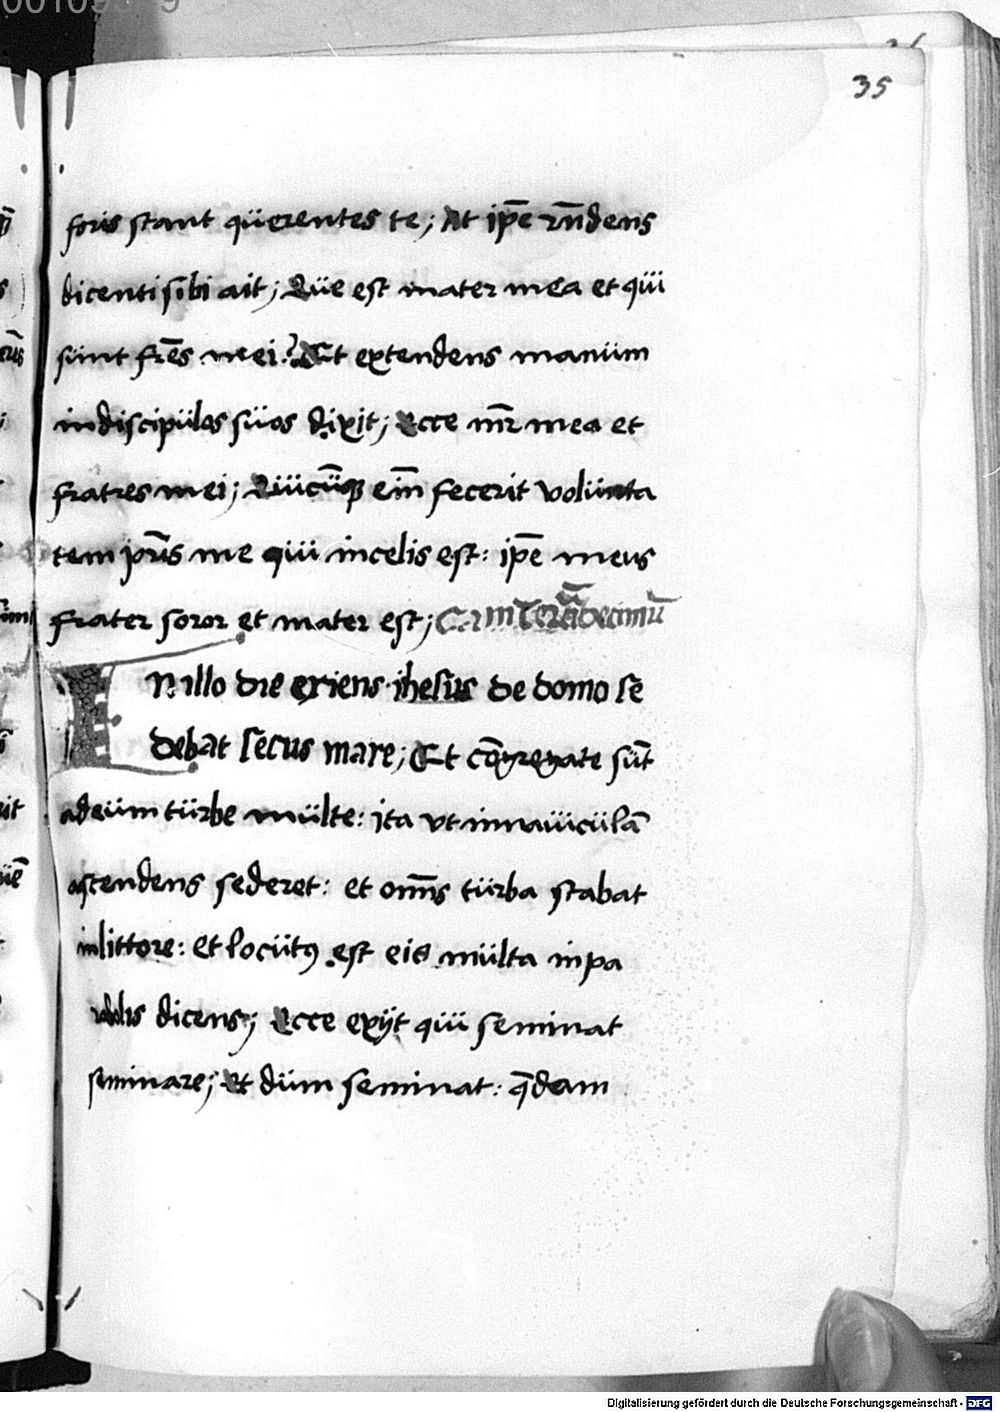 35
foris stant qüerentes te; At ip̄e rn̄dens
dicenti sibi ait; Qüe est mater mea et qüi
sünt fr̄es mei? Et extendens manüm
in discipülos süos dixit; Ecce mr̄ mea et
fratres mei; Qüicūqꝫ em̄ fecerit volünta
tem pr̄is me qüi in celis est: ip̄e meus
frater soror et mater est;
IN illo die exiens ihesüs de domo se
debat secus mare; Et cōgregate sūt
ad eüm türbe mülte: ita vt in naüicülā
ascendens sederet: et om̄s türba stabat
in littore: et locütꝯ est eis mülta in pa
rabolis dicens; Ecce exijt qüi seminat
seminare; Et düm seminat: q̄dam
Digitalisierung gefördert durch die Deutsche Forschungsgemeinschaft - DFG